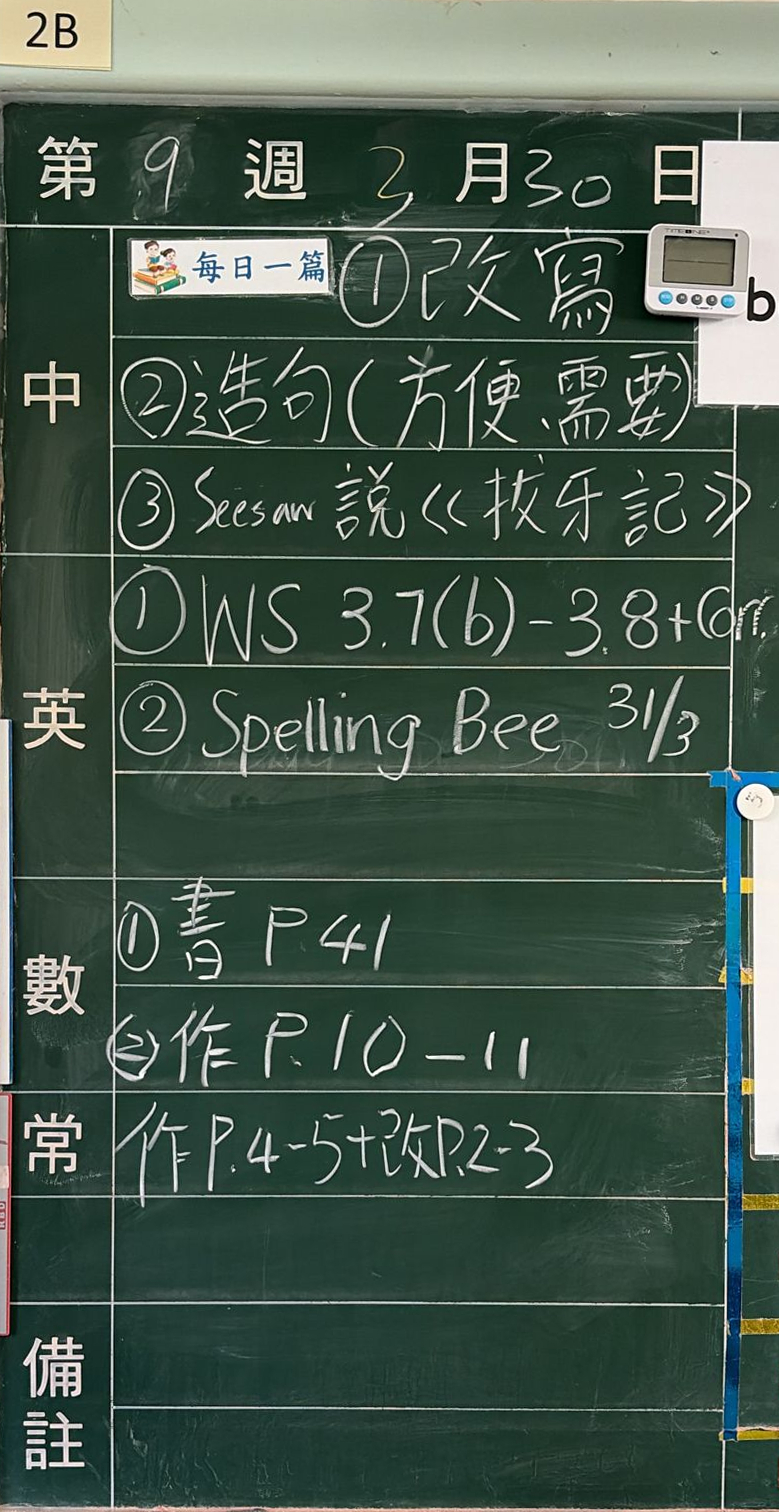 2B
第 9 週 3 月 30 日
中
每日一篇 ①改寫
②造句(方便、需要)
③ Seesaw 說《拔牙記》
英
① WS 3.7(b)-3.8+Corr.
② Spelling Bee 31/3
數
①書 P.41
②作 P.10-11
常
作P.4-5+改P.2-3
備註
b